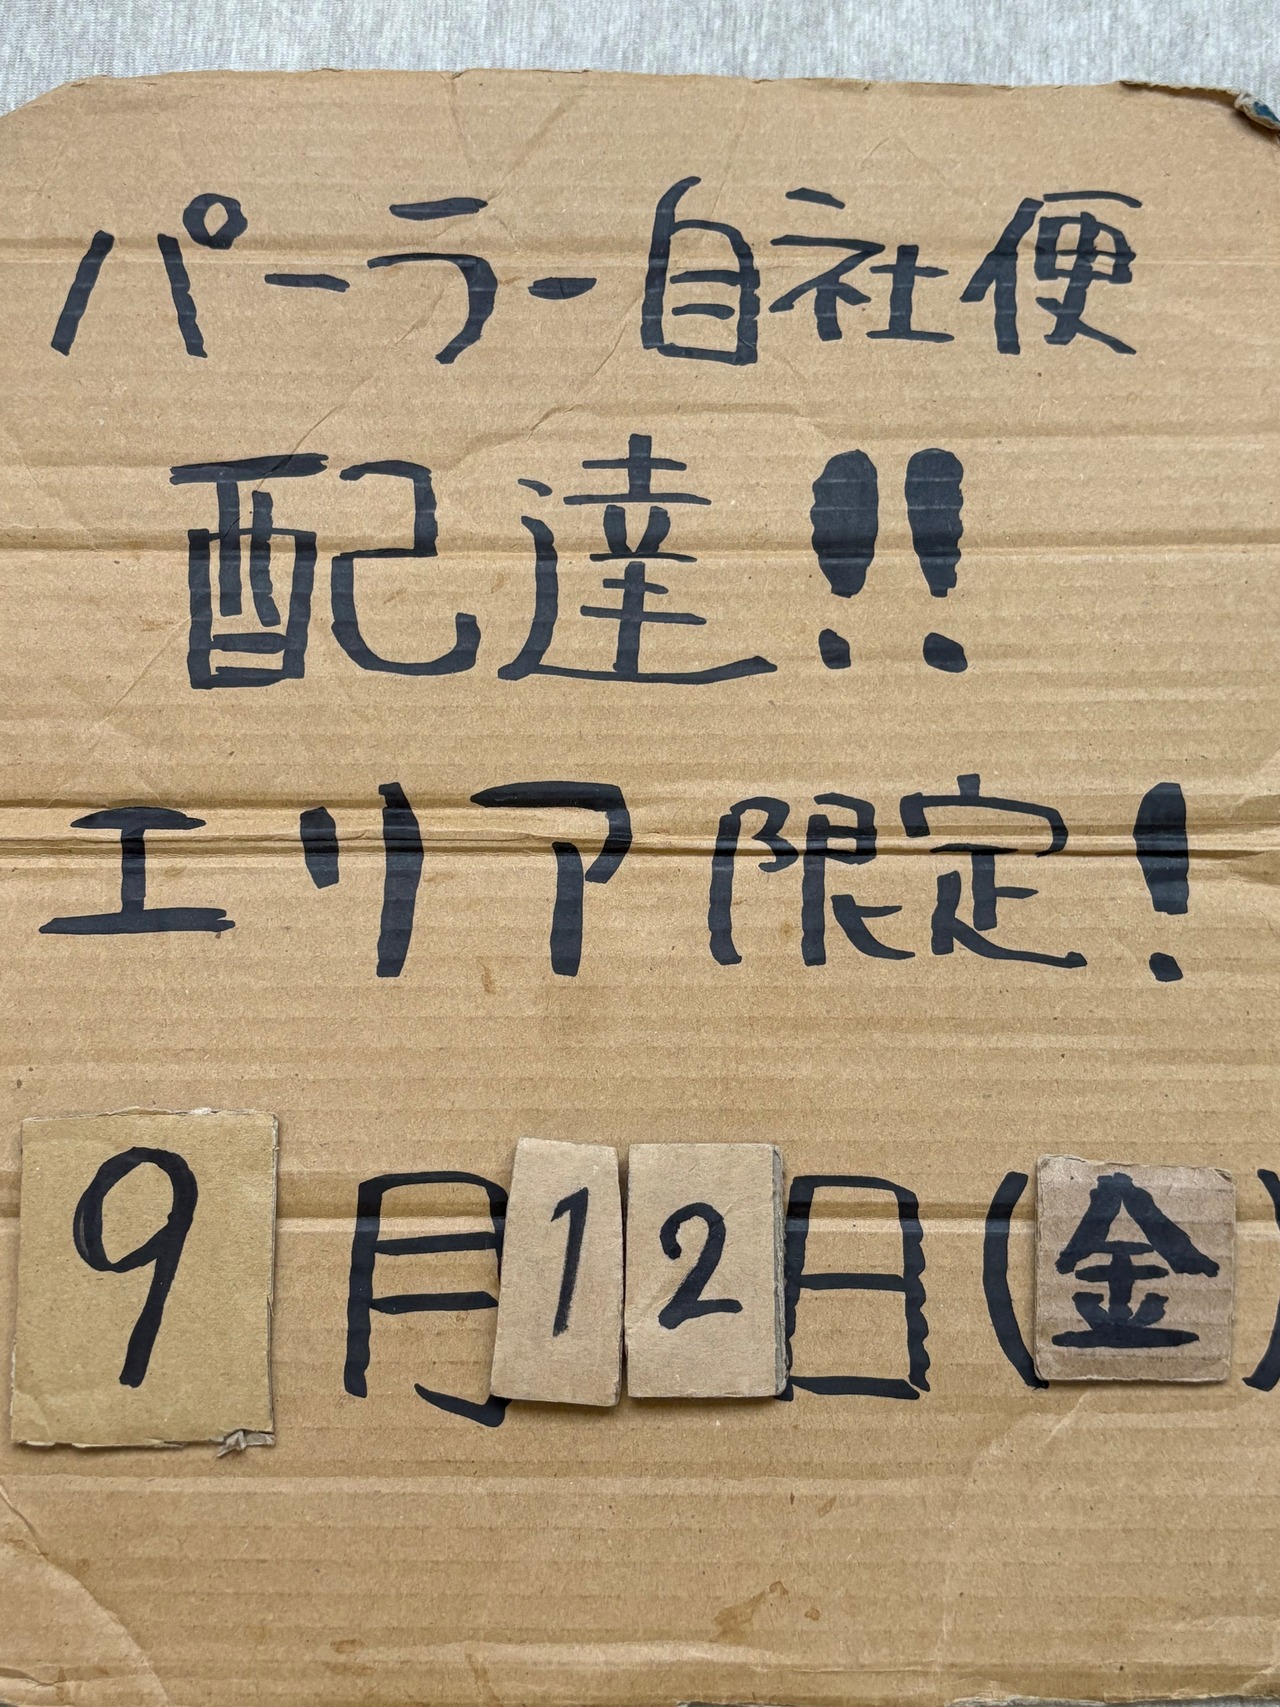 パーラー自社便
配達!!
エリア限定!
9月12日(金)